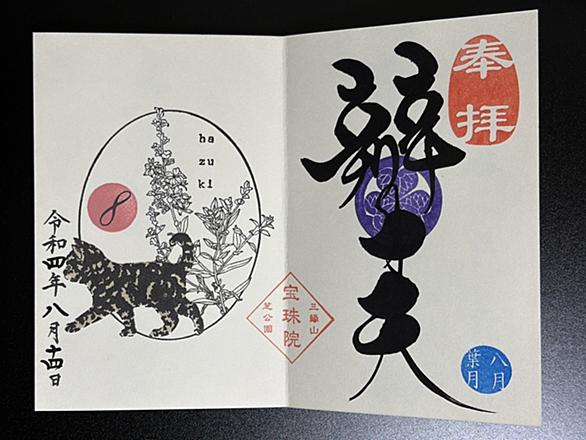 奉拝
辯才天
八月
葉月
三縁山
宝珠院
芝公園
ha
zu
ki
8
令和四年八月十四日